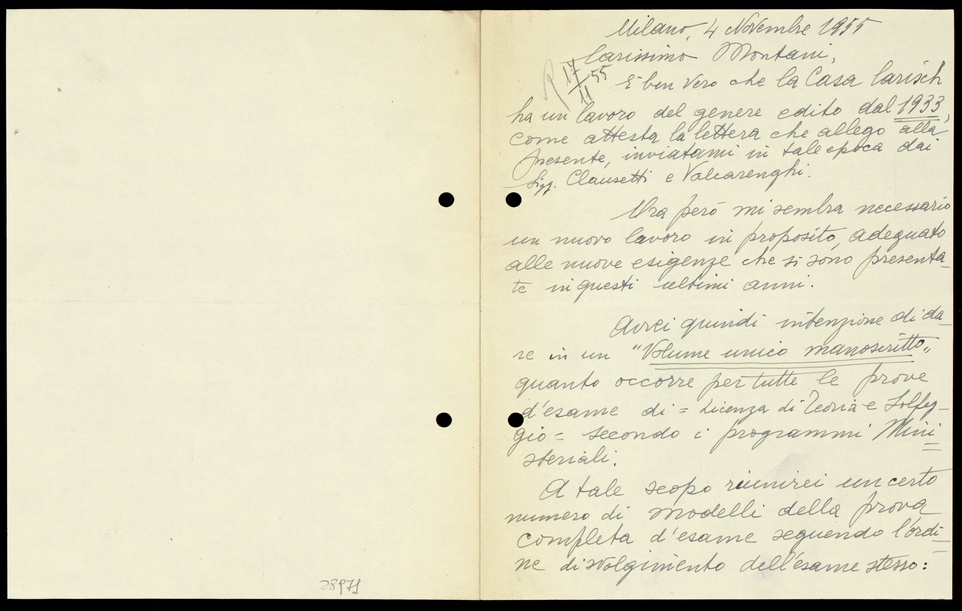 Milano, 4 Novembre 1955
Carissimo Montani,
R 17/11 55
È ben vero che la Casa Carisch
ha un lavoro del genere edito dal 1933,
come attesta la lettera che allego alla
presente, inviatami in tale epoca dai
Sigg. Clausetti e Valcarenghi.
Ora però mi sembra necessario
un nuovo lavoro in proposito, adeguato
alle nuove esigenze che si sono presenta-
te in questi ultimi anni.
Avrei quindi intenzione di da-
re in un "Volume unico manoscritto„
quanto occorre per tutte le prove
d'esame di = Licenza di Teoria e Solfeg-
gio = secondo i programmi Mini
steriali.
A tale scopo riunirei un certo
numero di modelli della prova
completa d'esame seguendo l'ordi-
ne di svolgimento dell'esame stesso:
38971